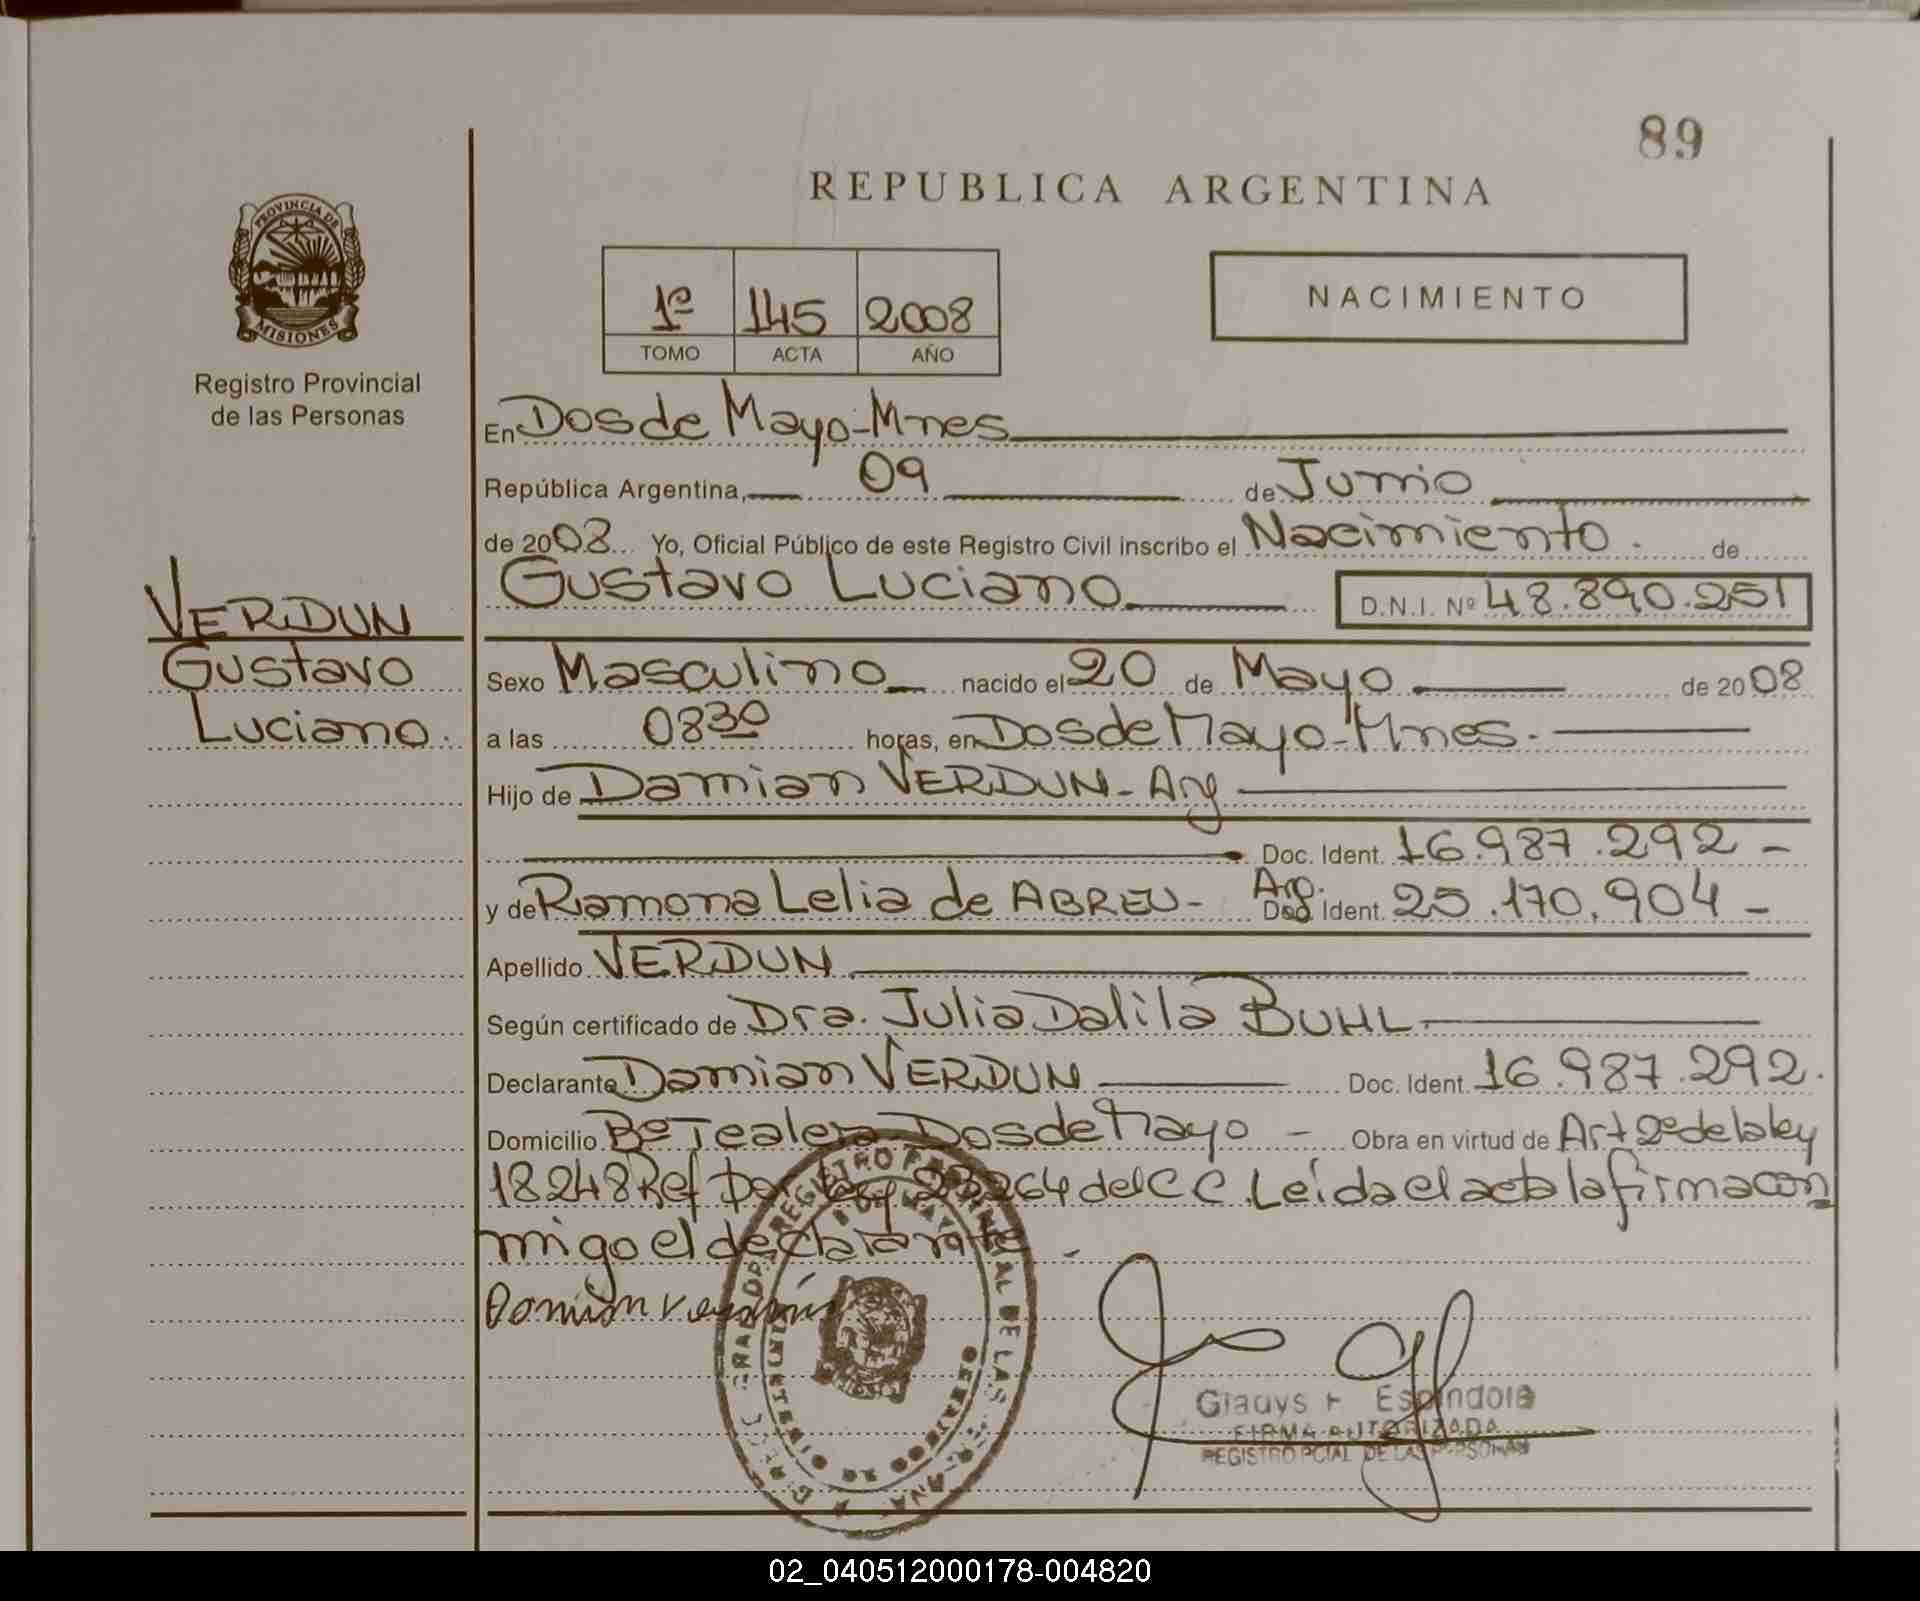 89
REPUBLICA ARGENTINA
PROVINCIA DE
MISIONES
Registro Provincial
de las Personas
1º 145 2008
TOMO ACTA AÑO
NACIMIENTO
En Dos de Mayo-Mnes
República Argentina, 09 de Junio
de 2008 Yo, Oficial Público de este Registro Civil inscribo el Nacimiento. de
Gustavo Luciano D.N.I. Nº 48.890.251
VERDUN
Gustavo
Luciano.
Sexo Masculino nacido el 20 de Mayo de 2008
a las 0830 horas, en Dos de Mayo-Mnes.
Hijo de Damian VERDUN-Arg
Doc. Ident. 16.987.292-
y de Ramona Lelia de ABREU- Arg. Doc. Ident. 25.170.904-
Apellido VERDUN
Según certificado de Dra. Julia Dalila BUHL
Declarante Damian VERDUN Doc. Ident. 16.987.292.
Domicilio Bº Tealera Dos de Mayo - Obra en virtud de Art 2º de la ley
18248 Ref por ley 23264 del C C. Leída el acta la firma con
migo el declarante.
Damian Verdun
Gladys Espindola
FIRMA AUTORIZADA
REGISTRO PCIAL DE LAS PERSONAS
02_040512000178-004820